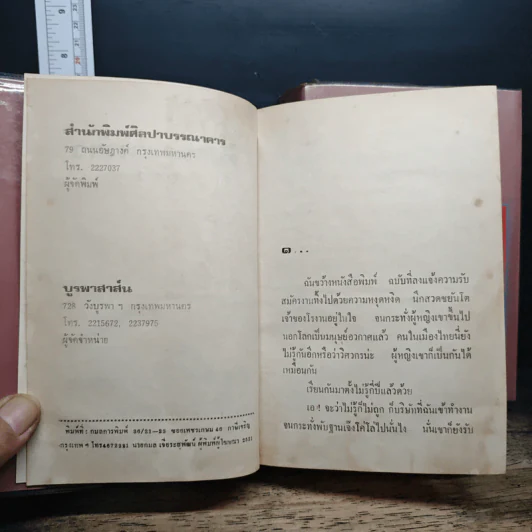 สำนักพิมพ์ศิลปาบรรณาคาร
79 ถนนอัษฎางค์ กรุงเทพมหานคร
โทร. 2227037
ผู้จัดพิมพ์
บูรพาสาส์น
728 วังบูรพา ฯ กรุงเทพมหานคร
โทร. 2215672, 2237975
ผู้จัดจำหน่าย
พิมพ์ที่
กรุงเทพ ฯ ผู้พิมพ์ผู้โฆษณา
๑...
ฉันขว้างหนังสือพิมพ์ ฉบับที่ลงแจ้งความรับ
สมัครงานทิ้งไปด้วยความหงุดหงิด นึกสวดขยันโต
เจ้าของโรงงานอยู่ในใจ จนกระทั่งผู้หญิงเขาขึ้นไป
นอกโลกเป็นมนุษย์อวกาศแล้ว คนในเมืองไทยนี่ยัง
ไม่รู้กันอีกหรือว่าวิศวกรน่ะ ผู้หญิงเขาก็เป็นกันได้
เหมือนกัน
เรียนกันมาตั้งไม่รู้กี่ปีแล้วด้วย
เอ! จะว่าไม่รู้ก็ไม่ถูก ก็บริษัทที่ฉันเข้าทำงาน
จนกระทั่งพับฐานเจ๊งโค่โล่ไปนั่นไง นั่นเขาก็ยังรับ